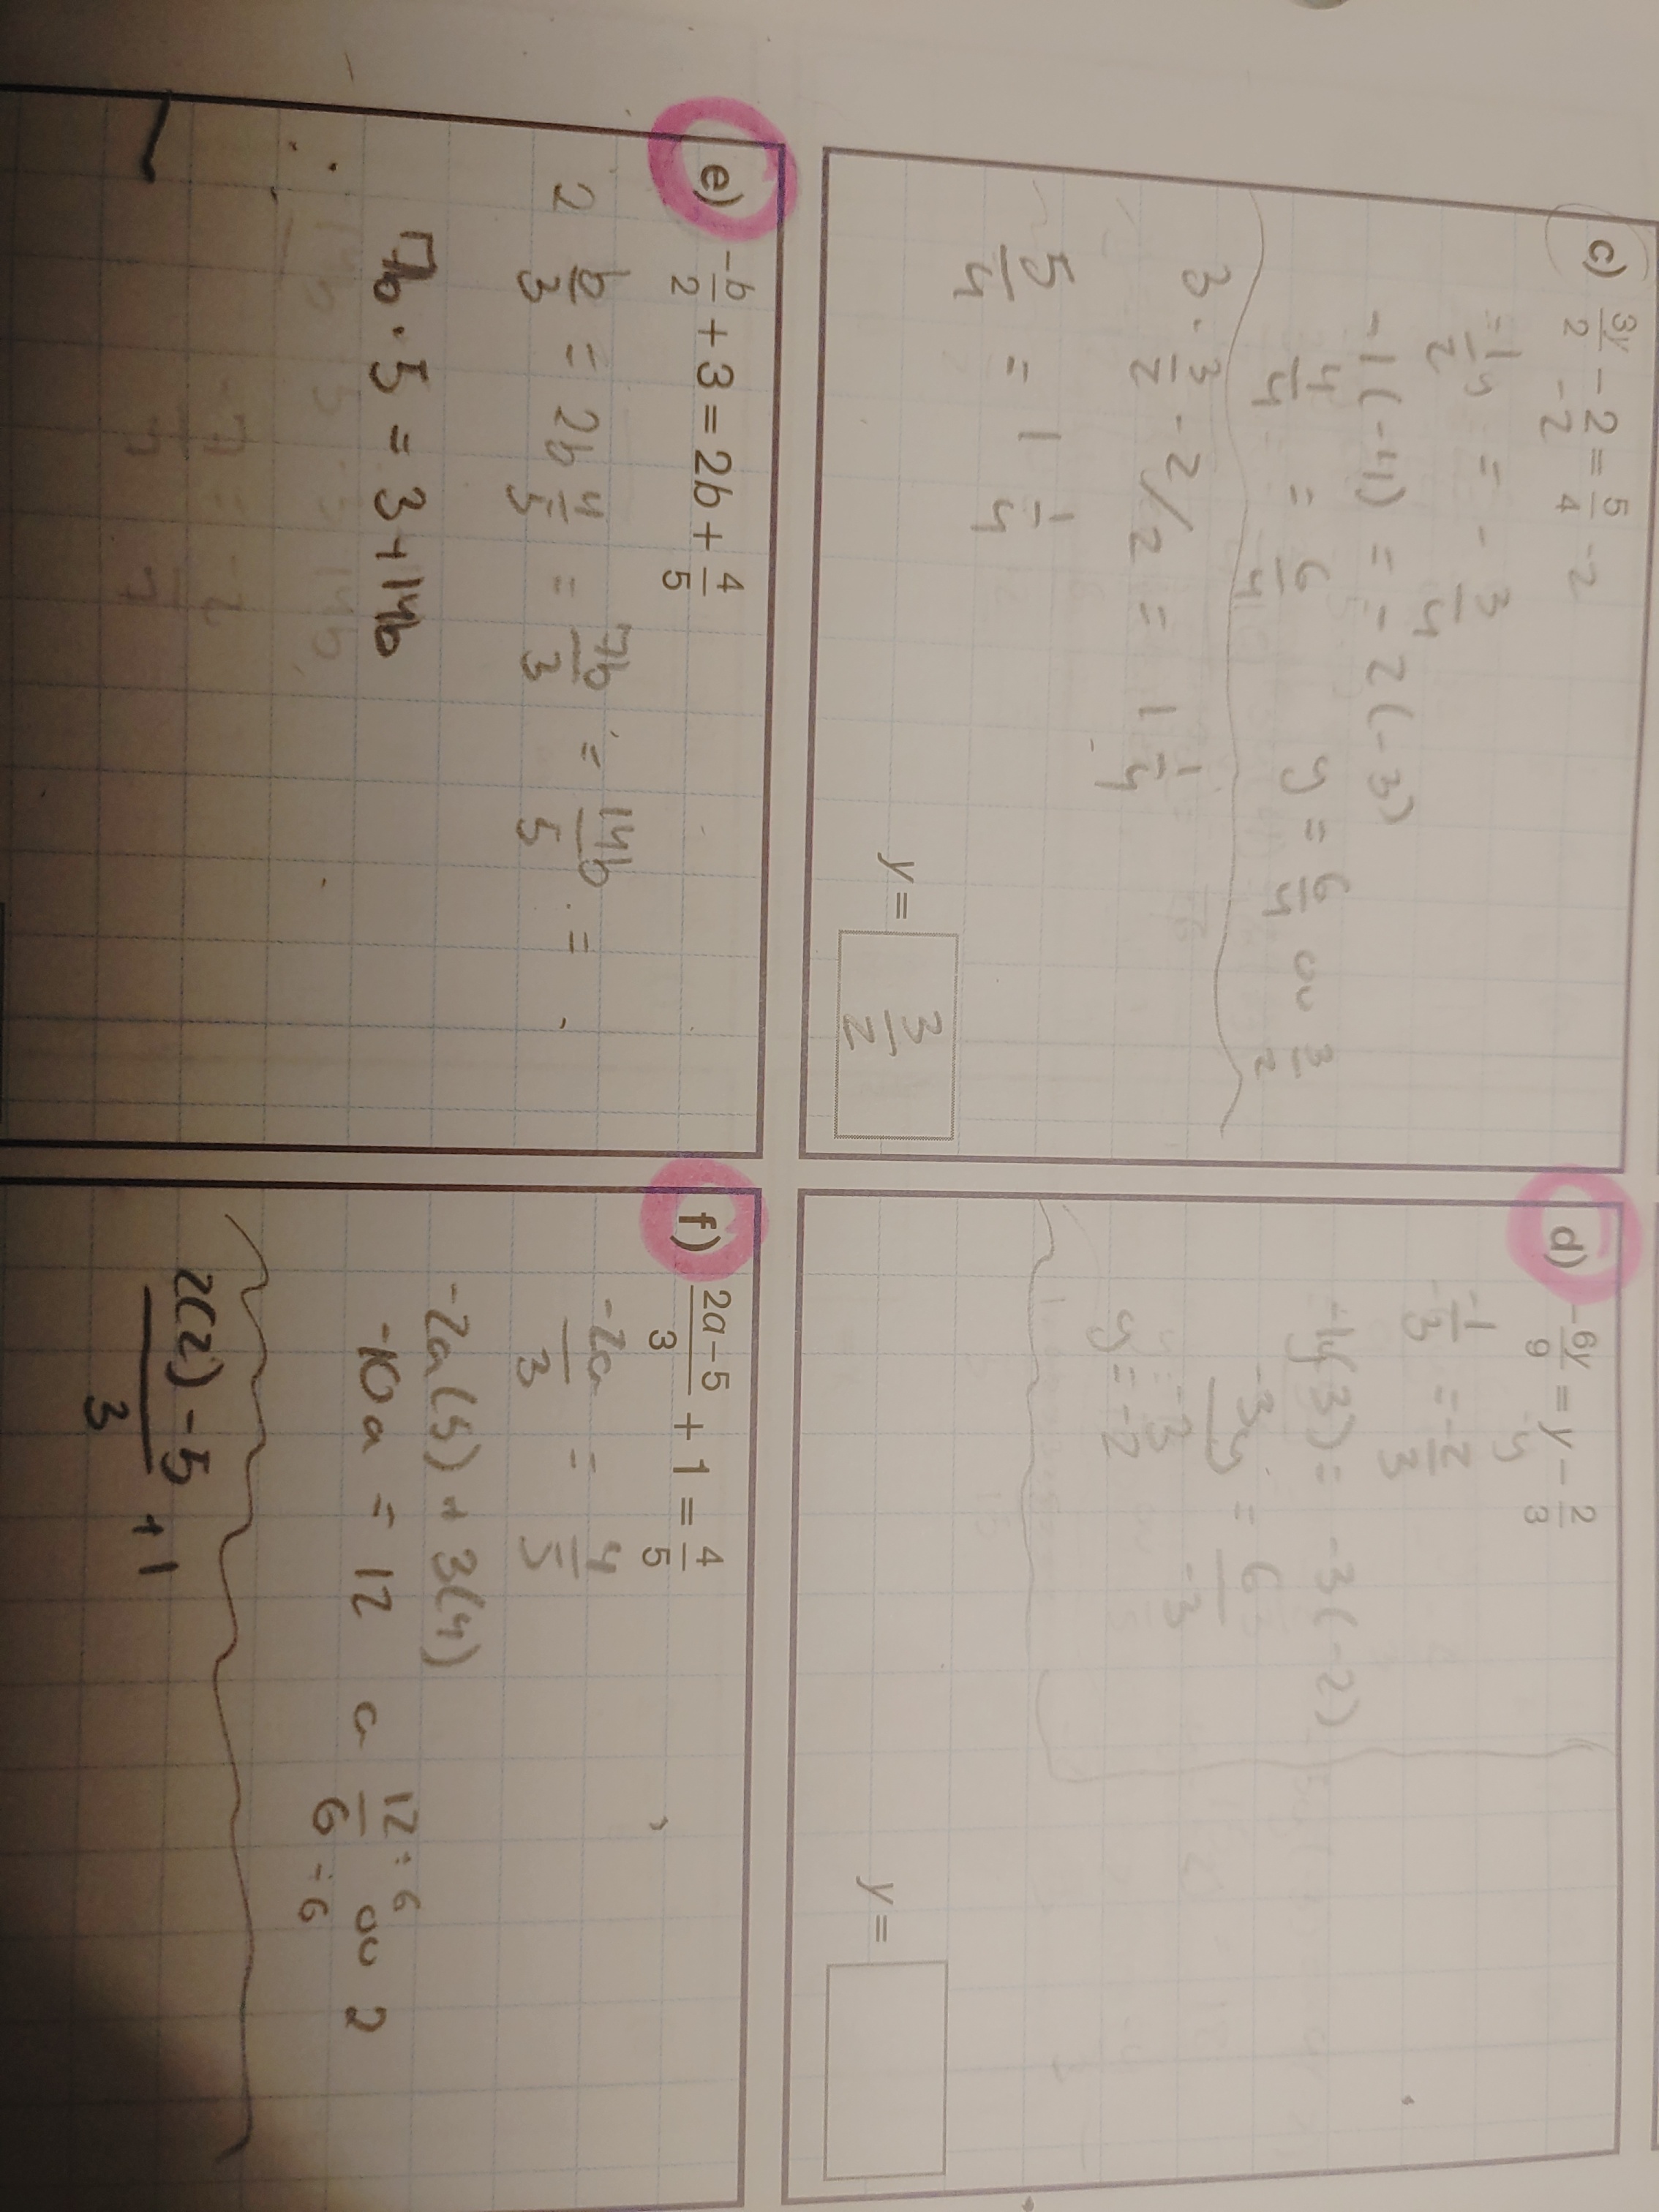 c) 3y/2 - 2 = 5/4 - 2
- 2
= -1/2 y = - 3/4
-1(-4) = -2(-3)
4/4 = 6/4 y = 6/4 ou 3/2
3 · 3/2 - 2/2 = 1 1/4
5/4 = 1 1/4
y = 3/2
d) -6y/9 = y - 2/3
-y
-1/3 = -2/3
-1y(3) = -3(-2)
-3y = 6/-3
y = -3
y = -2
y =
e) -b/2 + 3 = 2b + 4/5
2 b/3 = 2b 4/5 = 7b/3 = 14b/5 =
7b · 5 = 3 + 14b
f) 2a-5/3 + 1 = 4/5
-2a/3 = 4/5
-2a(5) + 3(4)
-10a = 12 a 12/6 ÷6 ÷6 ou 2
2(2)-5/3 + 1